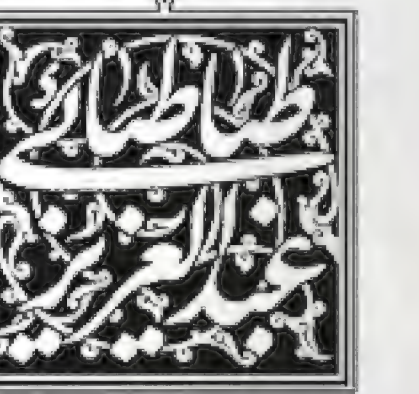 عبد العزيز
طباطبائی